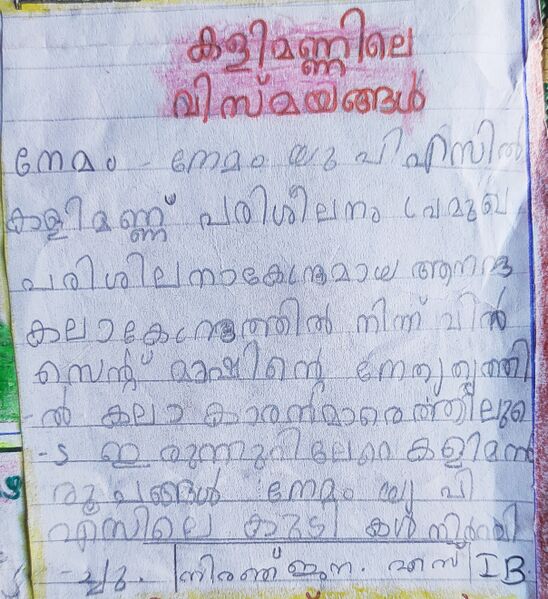 കളിമണ്ണിലെ
വിസ്മയങ്ങൾ
നേമം - നേമം യു പി എസിൽ
കളിമണ്ണ് പരിശീലനം പ്രമുഖ
പരിശീലനാകേന്ദ്രമായ ആനന്ദ
കലാകേന്ദ്രത്തിൽ നിന്ന് വിൻ
സെന്റ് മാഷിന്റെ നേതൃത്വത്തി
-ൽ കലാകാരൻമാരെത്തിലൂ
-ടെ ഇരുന്നൂറിലേറെ കളിമൺ
രൂപങ്ങൾ നേമം യു പി
എസിലെ കുട്ടികൾ നിർമ്മി
-ച്ചു. നിരഞ്ജന. എസ് I B.